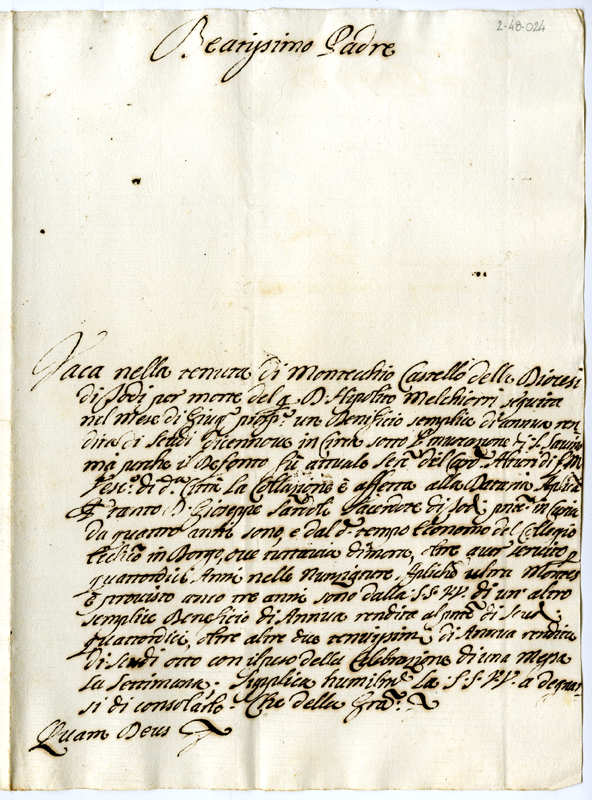 2-48-024
Beatissimo Padre
Vaca nella tenuta di Montecchio Castello della Diocesi
di Todi per morte del q. D. Hipolito Melchiorri seguita
nel mese di Giug.º pross.º un Beneficio semplice di annua ren
dita di scudi dicennove in circa sotto l'invocazione di S.
mà perche il Defonto fù attuale del Card. di f. M.
Vesc.º di d.ª Città la Collazione è affetta alla Dataria
Per tanto D. Giuseppe Sacerdote di in Curia
da quattro anni sono, e dal d.º tempo Economo del Collegio
in Borgo, ove tuttavia dimora, oltre aver servito p
quattordici Anni nelle Nunziature Apliche ultra Montes
è provisto anco tre anni sono dalla S. S. VV. di un' altro
semplice Beneficio di Annua rendita al di Scudi
quattordici, oltre altre due tenuissime di Annua rendita
di Scudi otto con il peso della Celebrazione di una messa
la Settimana. Supplica la S. S. VV. a degnar
si di consolarlo. Che della Gra.ª
Quam Deus